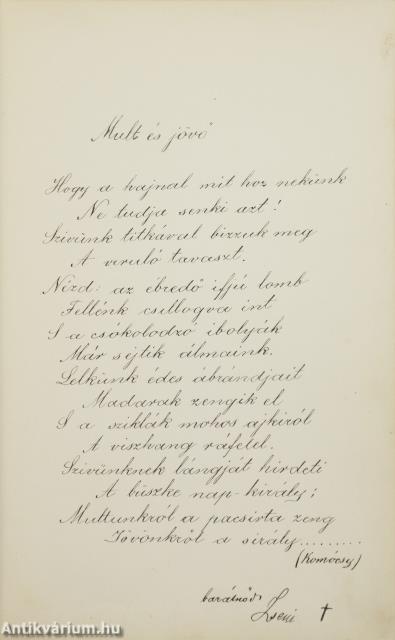 Mult és jövő
Hogy a hajnal mit hoz nekünk
Ne tudja senki azt!
Szivünk titkával bizzuk meg
A viruló tavaszt.
Nézd: az ébredő ifjú lomb
Fellénk csillogva int
S a csókolodzó ibolyák
Már sejtik álmaink.
Lelkünk édes ábrándjait
Madarak zengik el
S a sziklák mohos ajkiról
A viszhang ráfelel.
Szivünknek lángját hirdeti
A büszke nap-király;
Multunkról a pacsirta zeng
Jövönkről a sirály.........
(Komócsy)
barátnőd
Zseni †
Antikvárium.hu